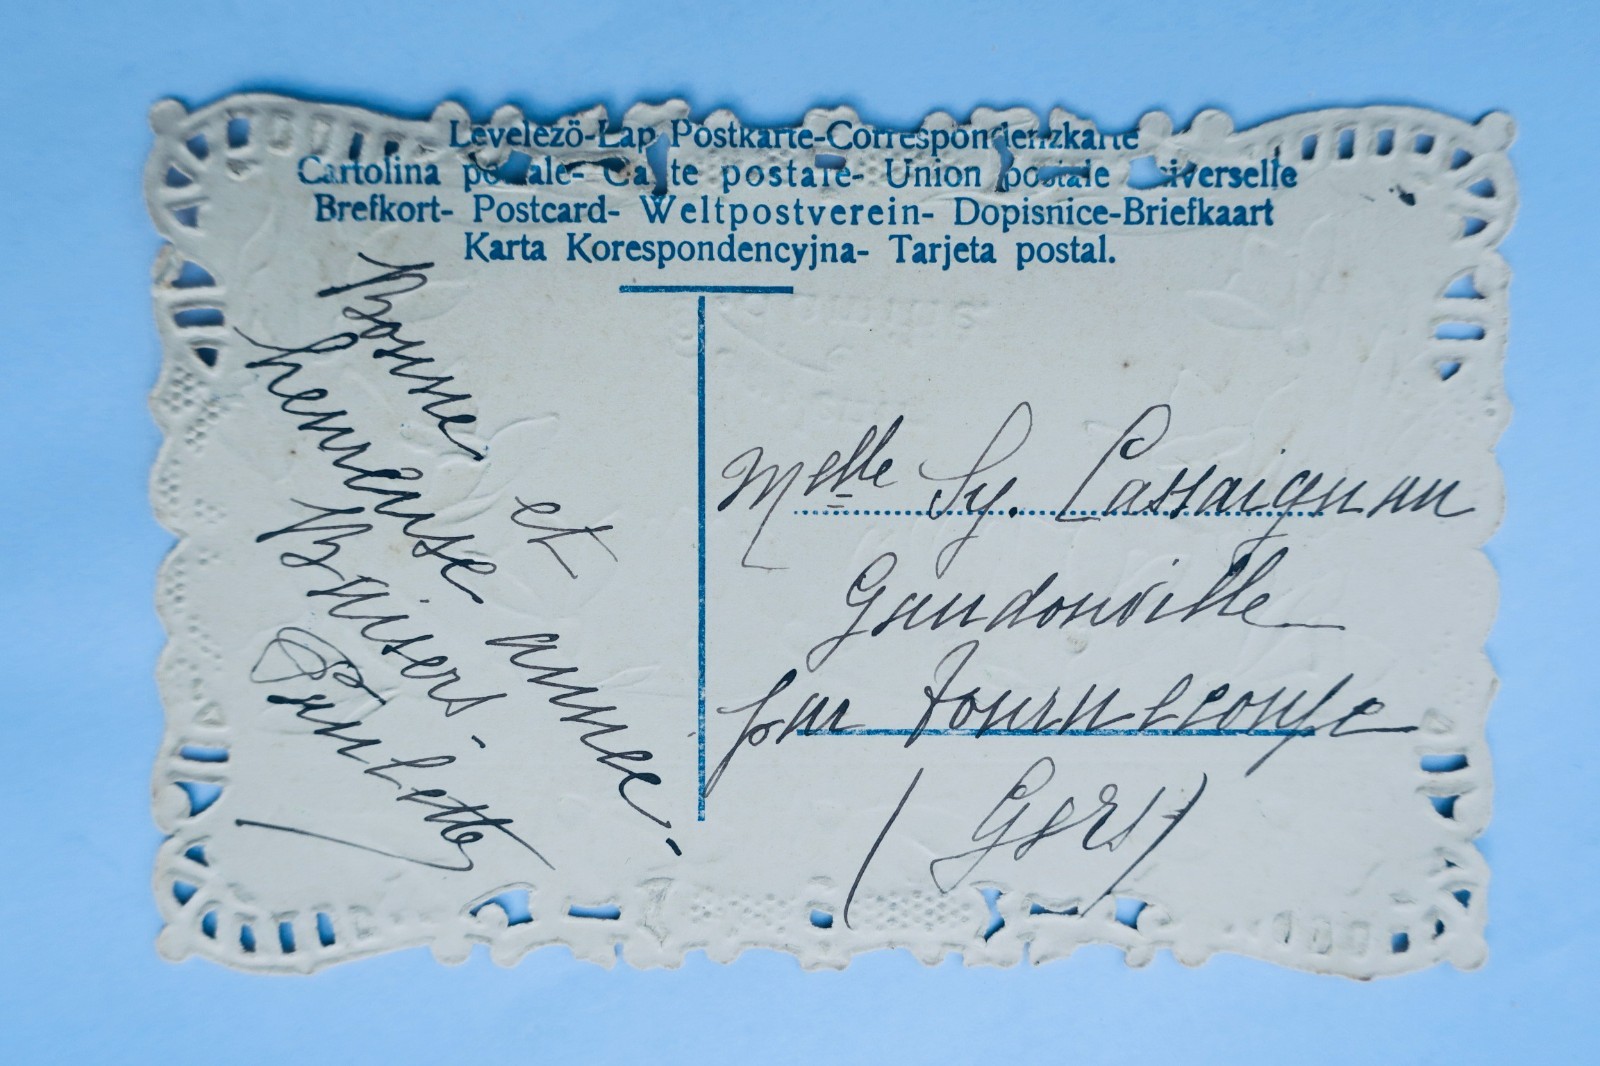 Levelező-Lap Postkarte-Correspondenzkarte
Cartolina postale- Carte postale- Union postale universelle
Brefkort- Postcard- Weltpostverein- Dopisnice-Briefkaart
Karta Korespondencyjna- Tarjeta postal.
Bonne et
heureuse année.
Baisers.
Paulette
Melle Sy. Lassaignan
Gaudonville
par Tournecoupe
(Gers)